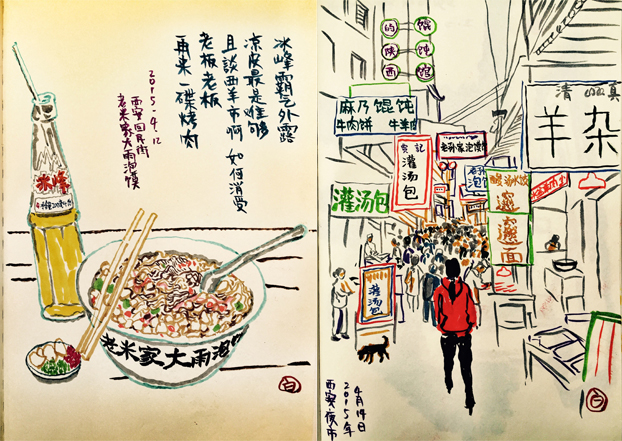 冰峰霸气外露
凉皮最是难够
且談西羊市啊 如何消受
老板老板
再来一碟烤肉
2015.4.12
西安回民街
老米家大雨泡馍
冰峰
老米家大雨泡
白
的 馄
陕 饨
西 馆
麻乃馄饨
牛肉饼 牛羊肉
灌汤包
老孙家泡馍
泡
灌汤包
清 真
羊杂
酸汤水饺
面
灌汤包
2015年
4月14日
西安夜市
白